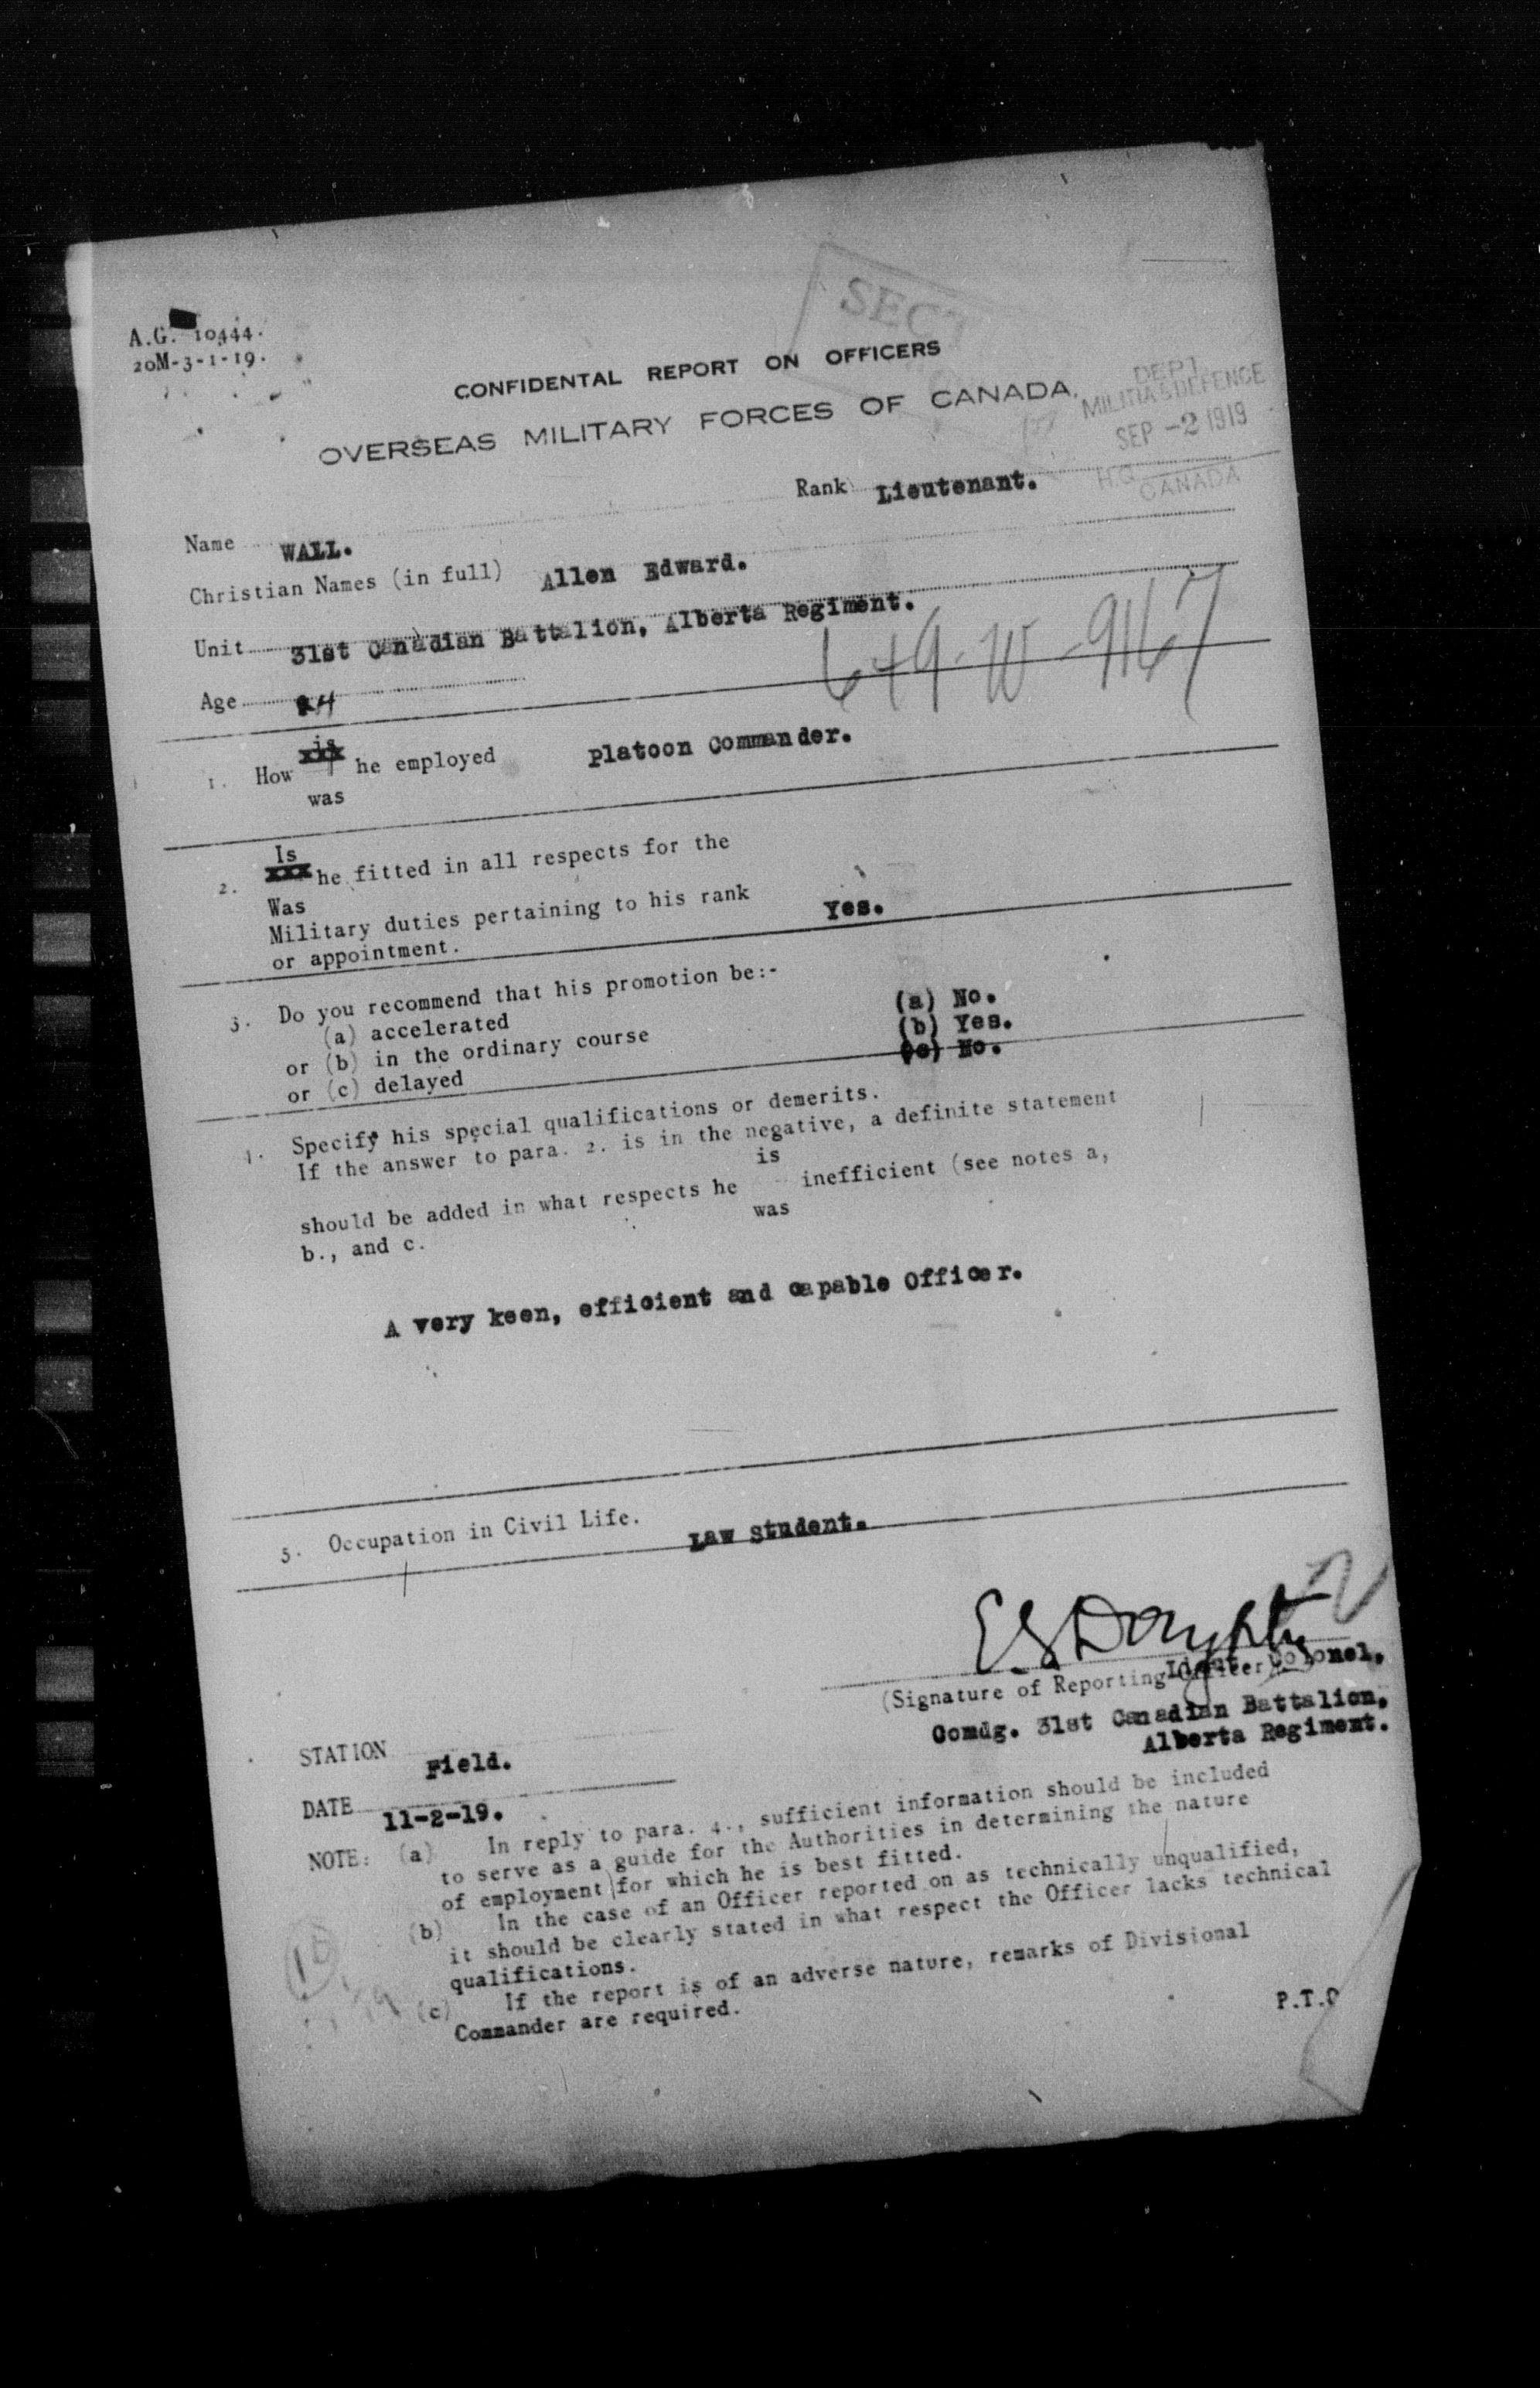 A.G. 10444.
20M-3-1-19.
SECT
CONFIDENTAL REPORT ON OFFICERS
OVERSEAS MILITARY FORCES OF CANADA.
DEPT
MILITIA & DEFENCE
SEP -2 1919
H.Q.
CANADA
Rank Lieutenant.
Name WALL.
Christian Names (in full) Allen Edward.
Unit 31st Canadian Battalion, Alberta Regiment.
649-W-9167
Age 24
is
1. How xxx he employed Platoon Commander.
was
Is
2. xxx he fitted in all respects for the
Was
Military duties pertaining to his rank Yes.
or appointment.
3. Do you recommend that his promotion be:-
(a) accelerated (a) No.
or (b) in the ordinary course (b) Yes.
or (c) delayed (c) No.
4. Specify his special qualifications or demerits.
If the answer to para. 2. is in the negative, a definite statement
is
should be added in what respects he inefficient (see notes a,
was
b., and c.
A very keen, efficient and capable Officer.
5. Occupation in Civil Life. Law Student.
Lieut. Colonel.
(Signature of Reporting Officer)
Comdg. 31st Canadian Battalion,
Alberta Regiment.
STATION Field.
DATE 11-2-19.
NOTE: (a) In reply to para. 4., sufficient information should be included
to serve as a guide for the Authorities in determining the nature
of employment for which he is best fitted.
(b) In the case of an Officer reported on as technically unqualified,
it should be clearly stated in what respect the Officer lacks technical
qualifications.
(c) If the report is of an adverse nature, remarks of Divisional
Commander are required.
P.T.O